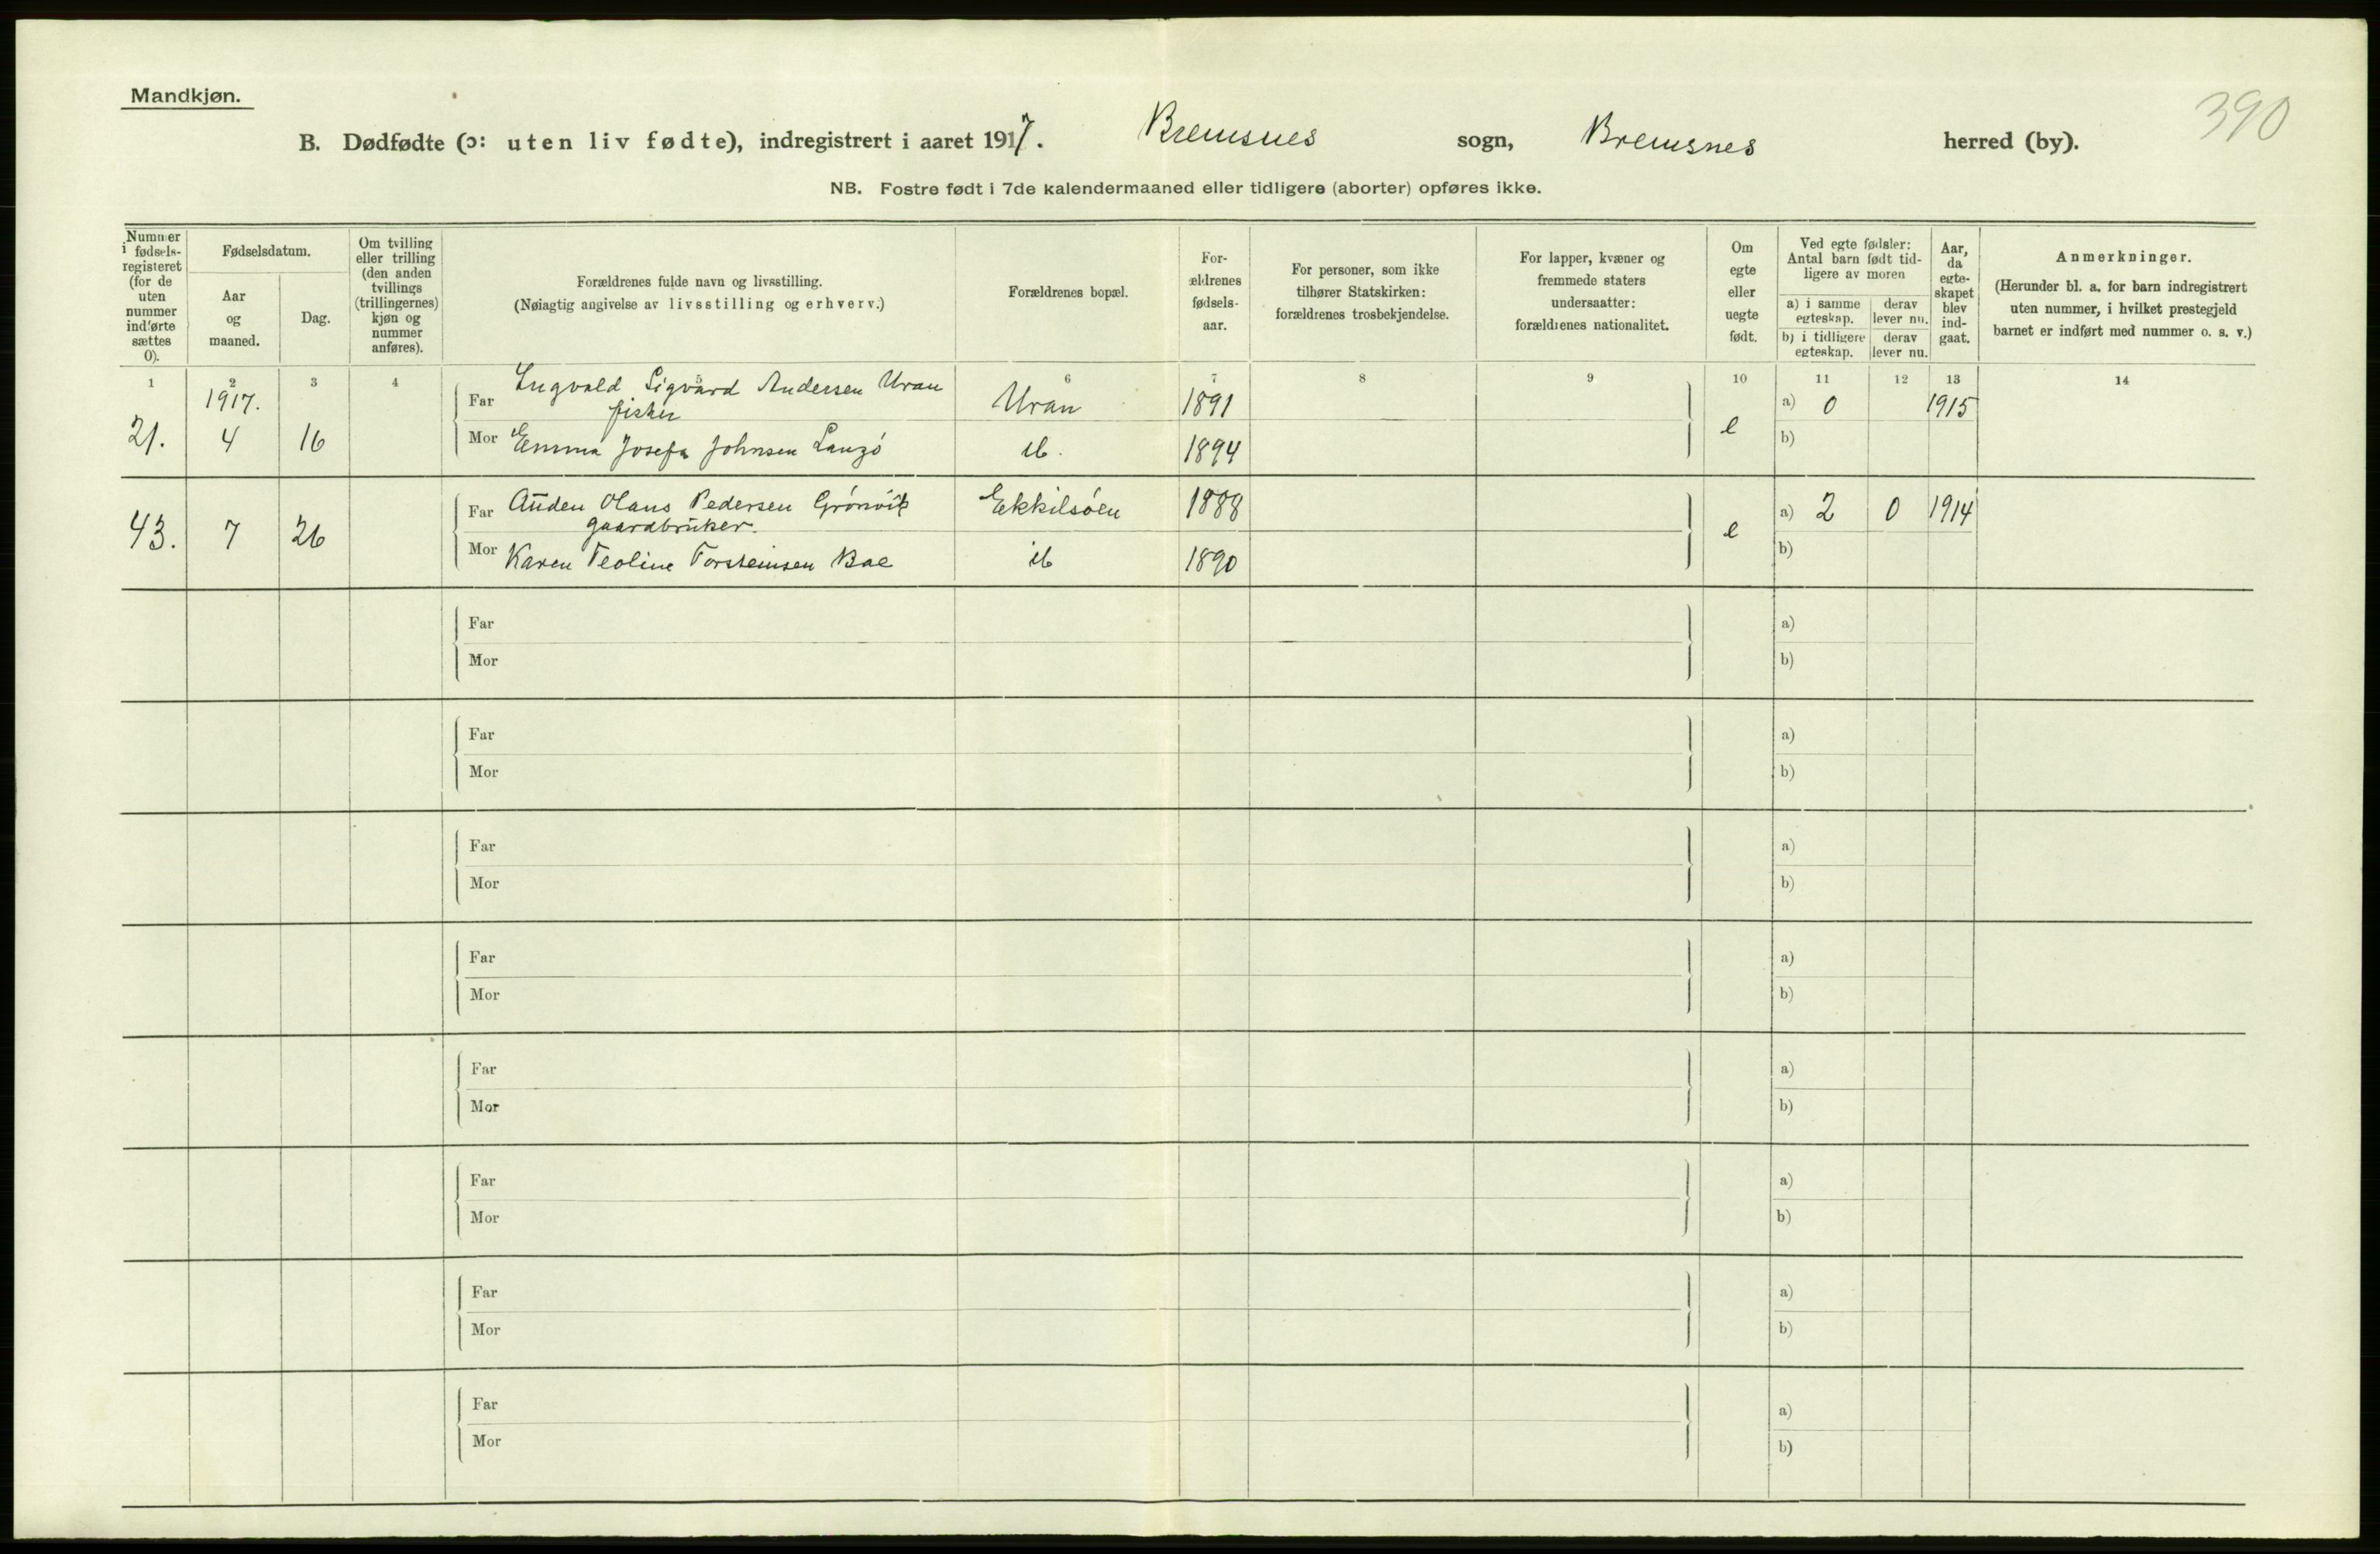 Mandkjøn.
390
B. Dødfødte (ɔ: uten liv fødte), indregistrert i aaret 1917. Bremsnes sogn, Bremsnes herred (by).
NB. Fostre født i 7de kalendermaaned eller tidligere (aborter) opføres ikke.
Nummer i fødsels-registeret (for de uten nummer indførte sættes 0).
Fødselsdatum.
Aar og maaned.
Dag.
Om tvilling eller trilling (den anden tvillings (trillingernes) kjøn og nummer anføres).
Forældrenes fulde navn og livsstilling.
(Nøiagtig angivelse av livsstilling og erhverv.)
Forældrenes bopæl.
For-ældrenes fødsels-aar.
For personer, som ikke tilhører Statskirken: forældrenes trosbekjendelse.
For lapper, kvæner og fremmede staters undersaatter: forældrenes nationalitet.
Om egte eller uegte født.
Ved egte fødsler: Antal barn født tid-ligere av moren
a) i samme egteskap.
derav lever nu.
b) i tidligere egteskap.
derav lever nu.
Aar, da egte-skapet blev ind-gaat.
Anmerkninger.
(Herunder bl. a. for barn indregistrert uten nummer, i hvilket prestegjeld barnet er indført med nummer o. s. v.)
1 2 3 4 5 6 7 8 9 10 11 12 13 14
1917.
21. 4 16
Far Ingvald Sigvard Andersen Uran Uran 1891 e a) 0 1915
fisker
Mor Emma Josefa Johnsen Langö ib. 1894 b)
43. 7 26
Far Auden Olaus Pedersen Grönvik Ekkilsöen 1888 e a) 2 0 1914
gaardbruker.
Mor Karen Teoline Torsteinsen Bae ib 1890 b)
Far a)
Mor b)
Far a)
Mor b)
Far a)
Mor b)
Far a)
Mor b)
Far a)
Mor b)
Far a)
Mor b)
Far a)
Mor b)
Far a)
Mor b)